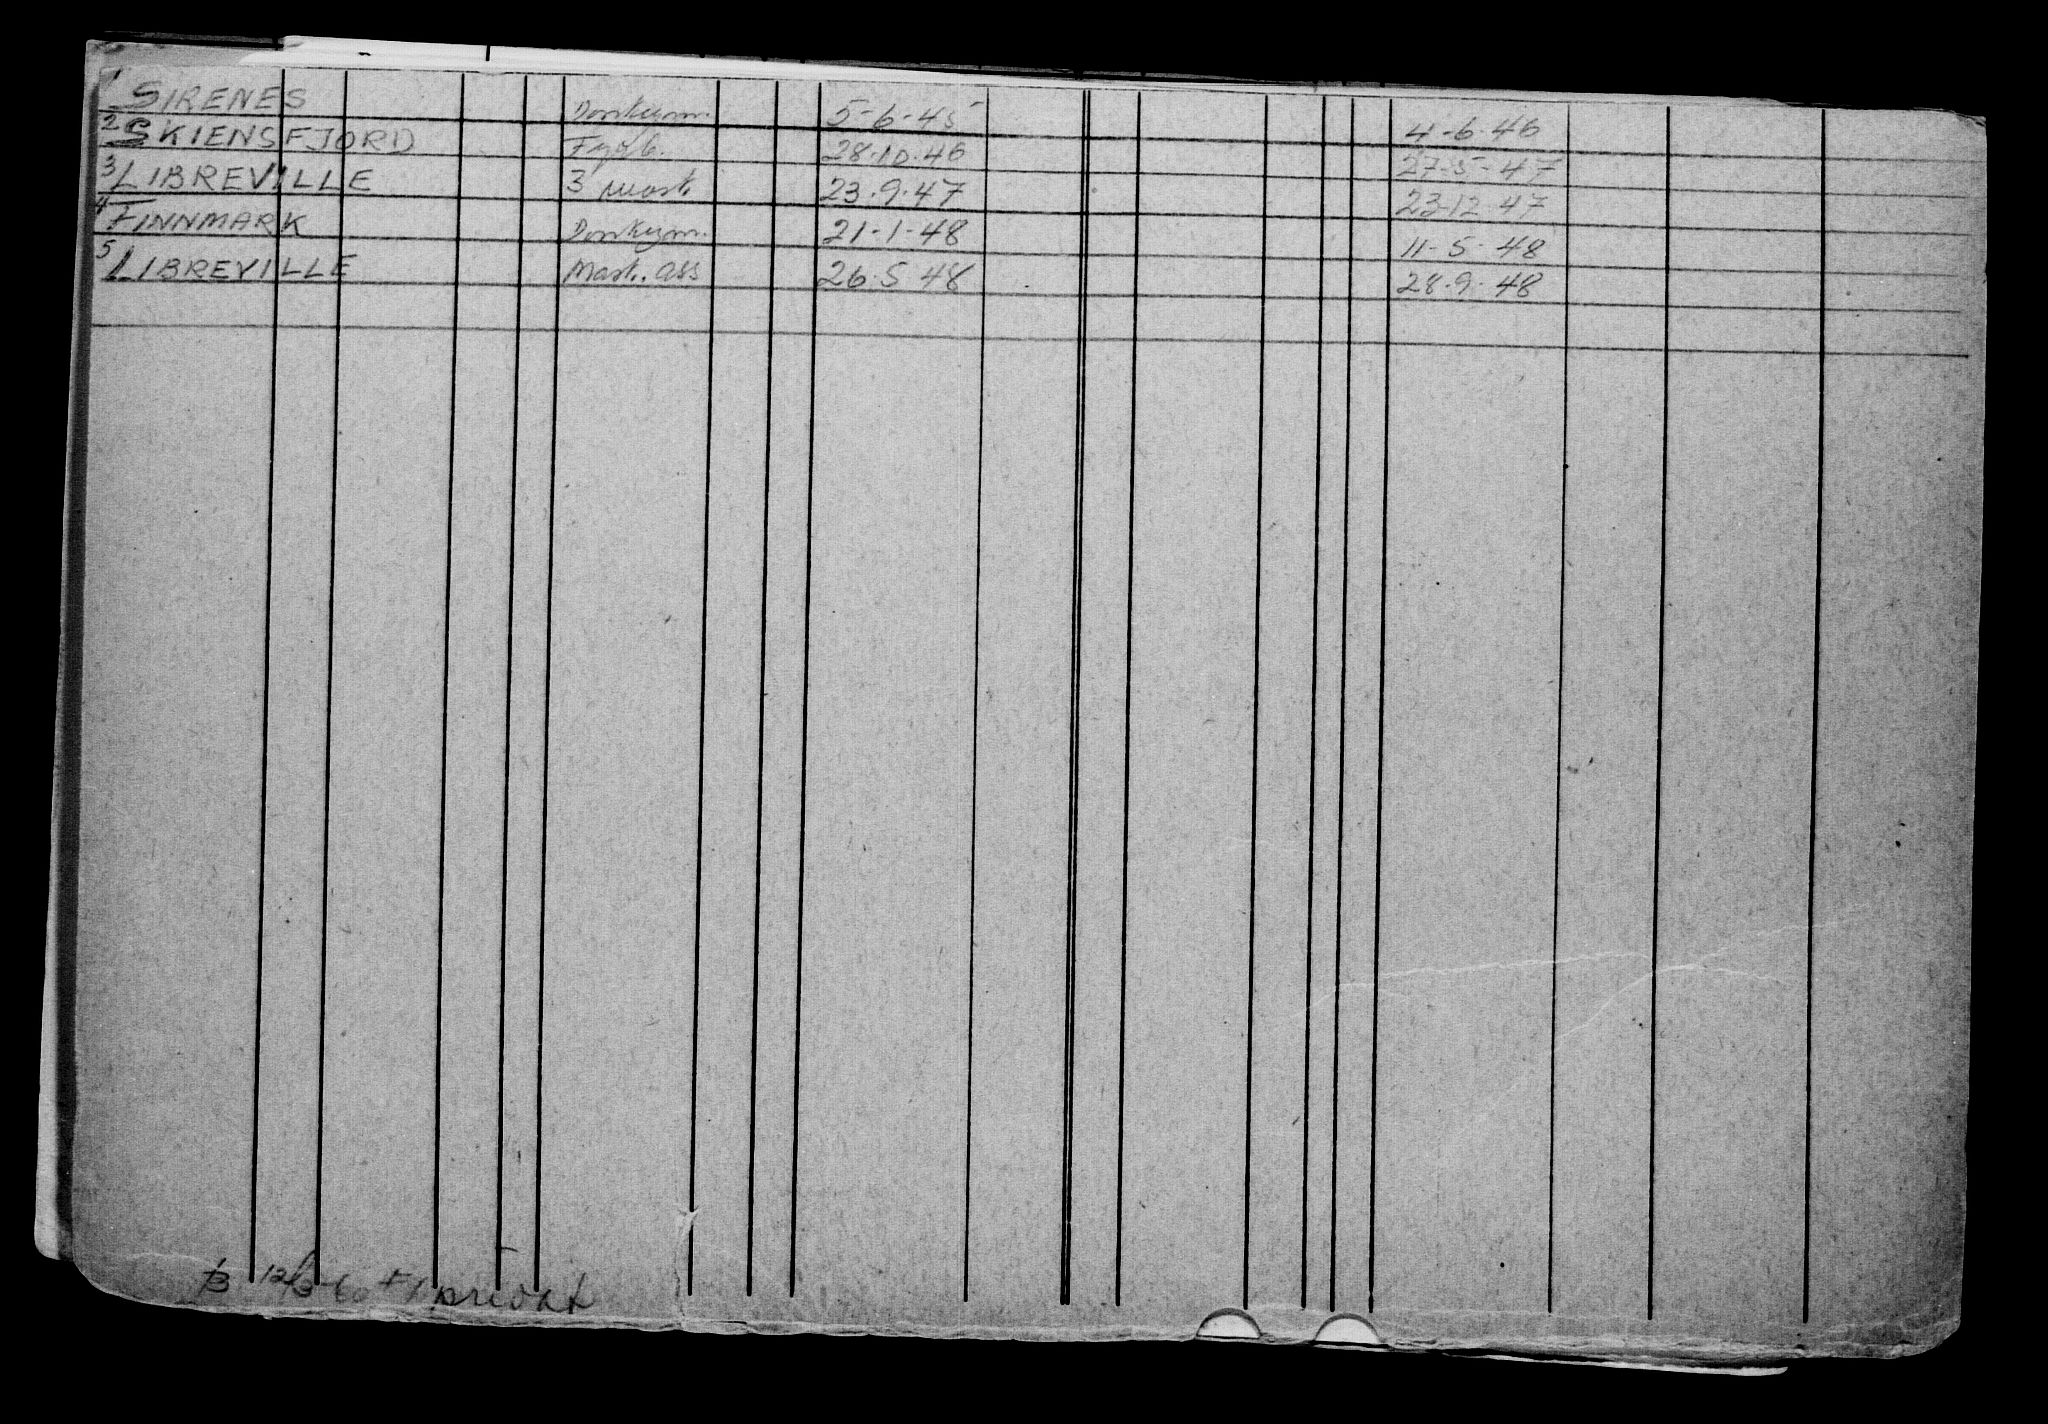 1 SIRENES Donkeym. 5-6-45 4-6-46
2 SKIENSFJORD Fyrb. 28.10.46 27-5-47
3 LIBREVILLE 3 mask 23.9.47 23-12 47
4 FINNMARK Donkeym. 21-1-48 11-5-48
5 LIBREVILLE Mask. ass 26.5 48 28.9.48
12/3-60 privat